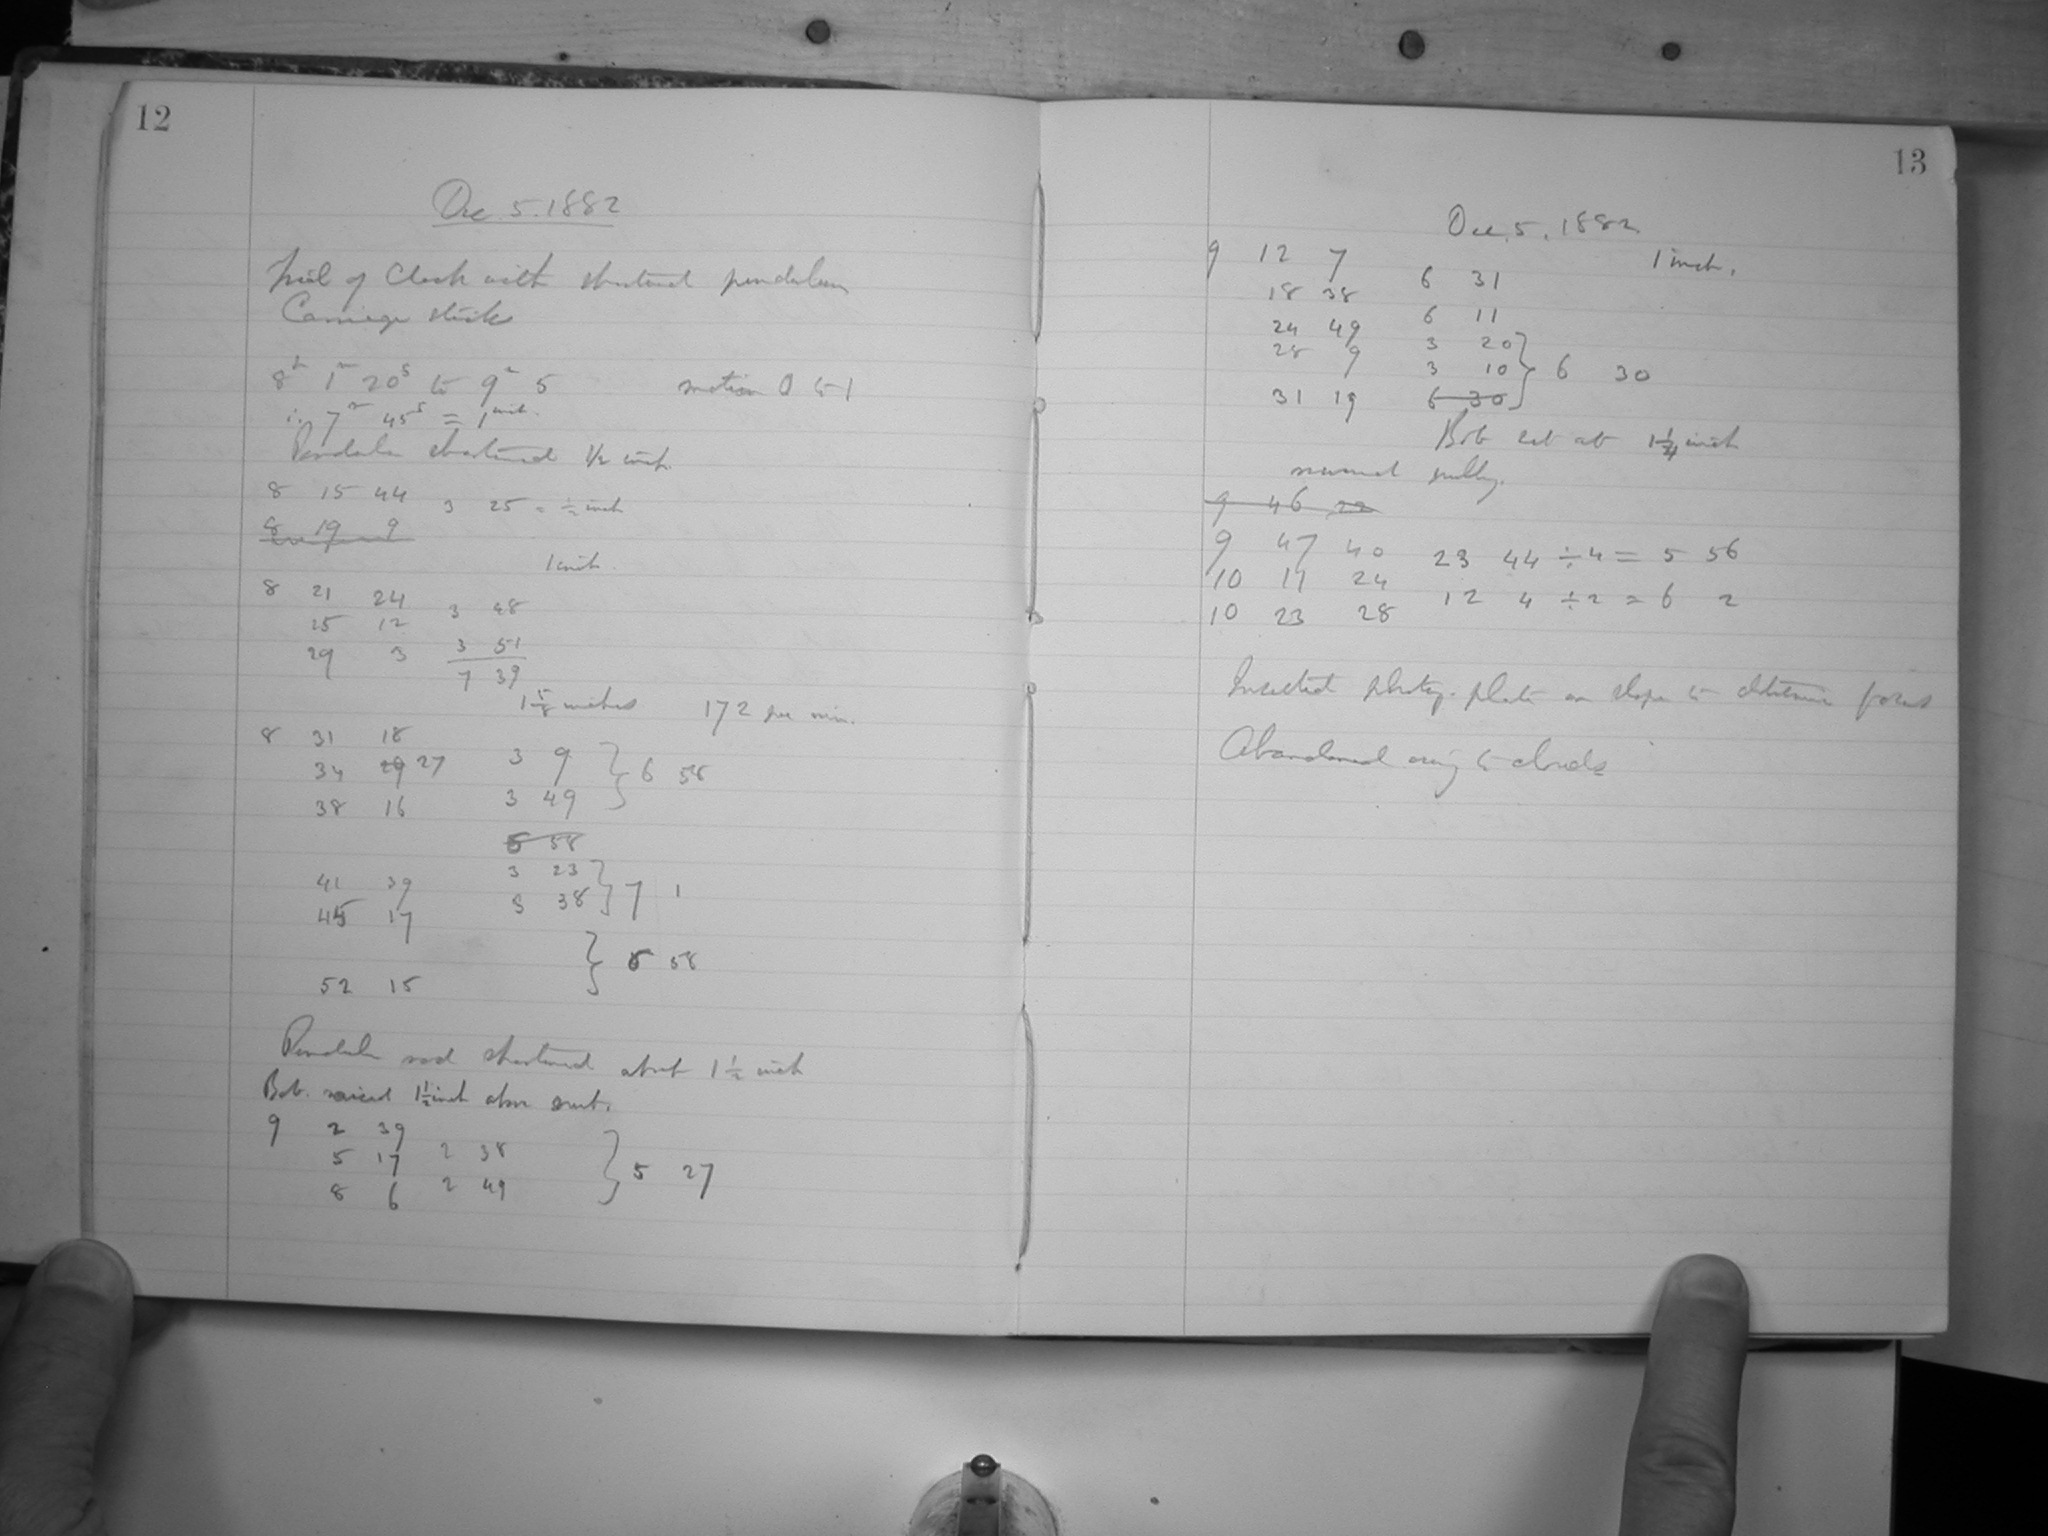 12
Dec. 5. 1882
Trial of Clock with shortened pendulum
Carriage sticks
8h 1m 20s to 9m 5 motion 0 to 1
in 7m 45s = 1 inch.
Pendulum shortened 1/2 inch.
8 15 44 3 25 = 1/2 inch
8 19 9
1 inch.
8 21 24
3 48
25 12
29 3 3 51
7 39
1 5/8 inches 172 per min.
8 31 18
3 9 } 6 58
34 29 27
38 16 3 49
6 58
3 23 } 7 1
41 39
45 17 3 38
} 6 58
52 15
Pendulum rod shortened about 1 1/2 inch
Bob. raised 1 1/2 inch above
9 2 39
5 17 2 38 } 5 27
8 6 2 49
13
Dec. 5. 1882
9 12 7 1 inch.
18 38 6 31
24 49 6 11
28 9 3 20 } 6 30
3 10
31 19 6 30
Bob set at 1 1/4 inch
normal pulley.
9 46 22
9 47 40 23 44 ÷ 4 = 5 56
10 11 24
12 4 ÷ 2 = 6 2
10 23 28
Inserted photog. plate on slope to determine focus
Abandoned owing to clouds